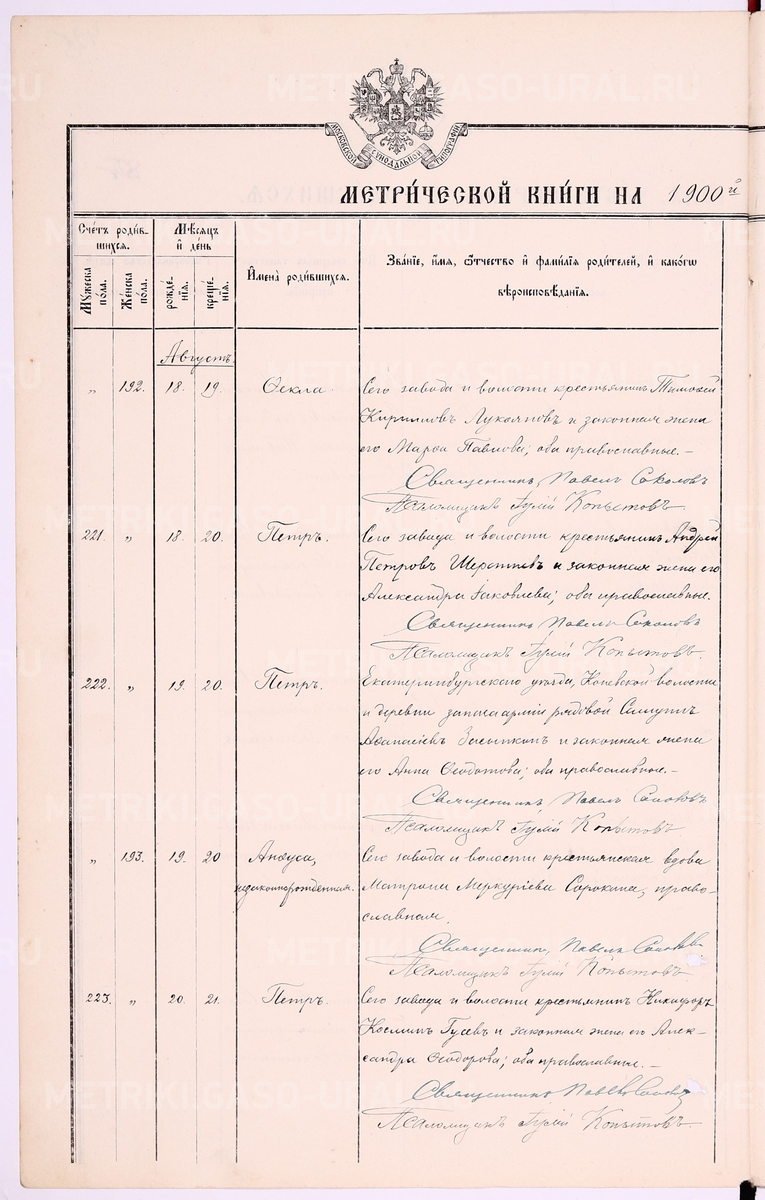 МОСКОВСКОЙ СѴНОДАЛЬНОЙ ТИПОГРАФІИ
МЕТРИ́ЧЕСКОЙ КНИ́ГИ НА 1900й
Сче́тъ роди́в-
шихсѧ.
Мѣ́сяцъ
и҆ де́нь
Мꙋ́жеска по́ла.
Же́нска по́ла.
рожде́нїѧ.
креще́нїѧ.
И҆мена̀ роди́вшихсѧ.
Зва́нїе, и҆́мѧ, ѻ҆́тчество и҆ фами́лїѧ роди́телей, и҆ како́гѡ
вѣроисповѣ́данїѧ.
Августъ.
„ 192. 18. 19. Ѳекла. Сего завода и волости крестьянинъ Тимоѳей
Кирилловъ Лукояновъ и законная жена
его Марѳа Павлова; оба православные. –
Священникъ Павелъ Соколовъ
Псаломщикъ Гулій Копытовъ
221. „ 18. 20. Петръ. Сего завода и волости крестьянинъ Андрей
Петровъ и законная жена его
Александра Іаковлева; оба православные.
Священникъ Павелъ Соколовъ
Псаломщикъ Гулій Копытовъ.
222. „ 19. 20. Петръ. Екатеринбургскаго уѣзда, Коневской волости
и деревни запаса арміи рядовой
Аѳанасіевъ и законная жена
его Анна Ѳеодотова; оба православные. –
Священникъ Павелъ Соколовъ
Псаломщикъ Гулій Копытовъ
„ 193. 19. 20 Анѳуса,
незаконнорожденная. Сего завода и волости крестьянская вдова
Матрона Меркуріева Сорокина, право-
славная.
Священникъ Павелъ Соколовъ
Псаломщикъ Гулій Копытовъ
223. „ 20. 21. Петръ. Сего завода и волости крестьянинъ Никифоръ
Косминъ Гусевъ и законная жена его Алек-
сандра Ѳеодорова; оба православные. –
Священникъ Павелъ Соколовъ
Псаломщикъ Гулій Копытовъ.
METRIKI.GASO-URAL.RU